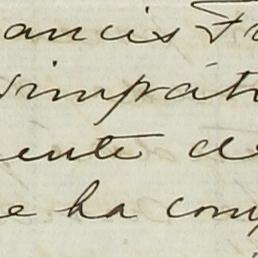 ancis Fr
simpáti
ente de
e ha com